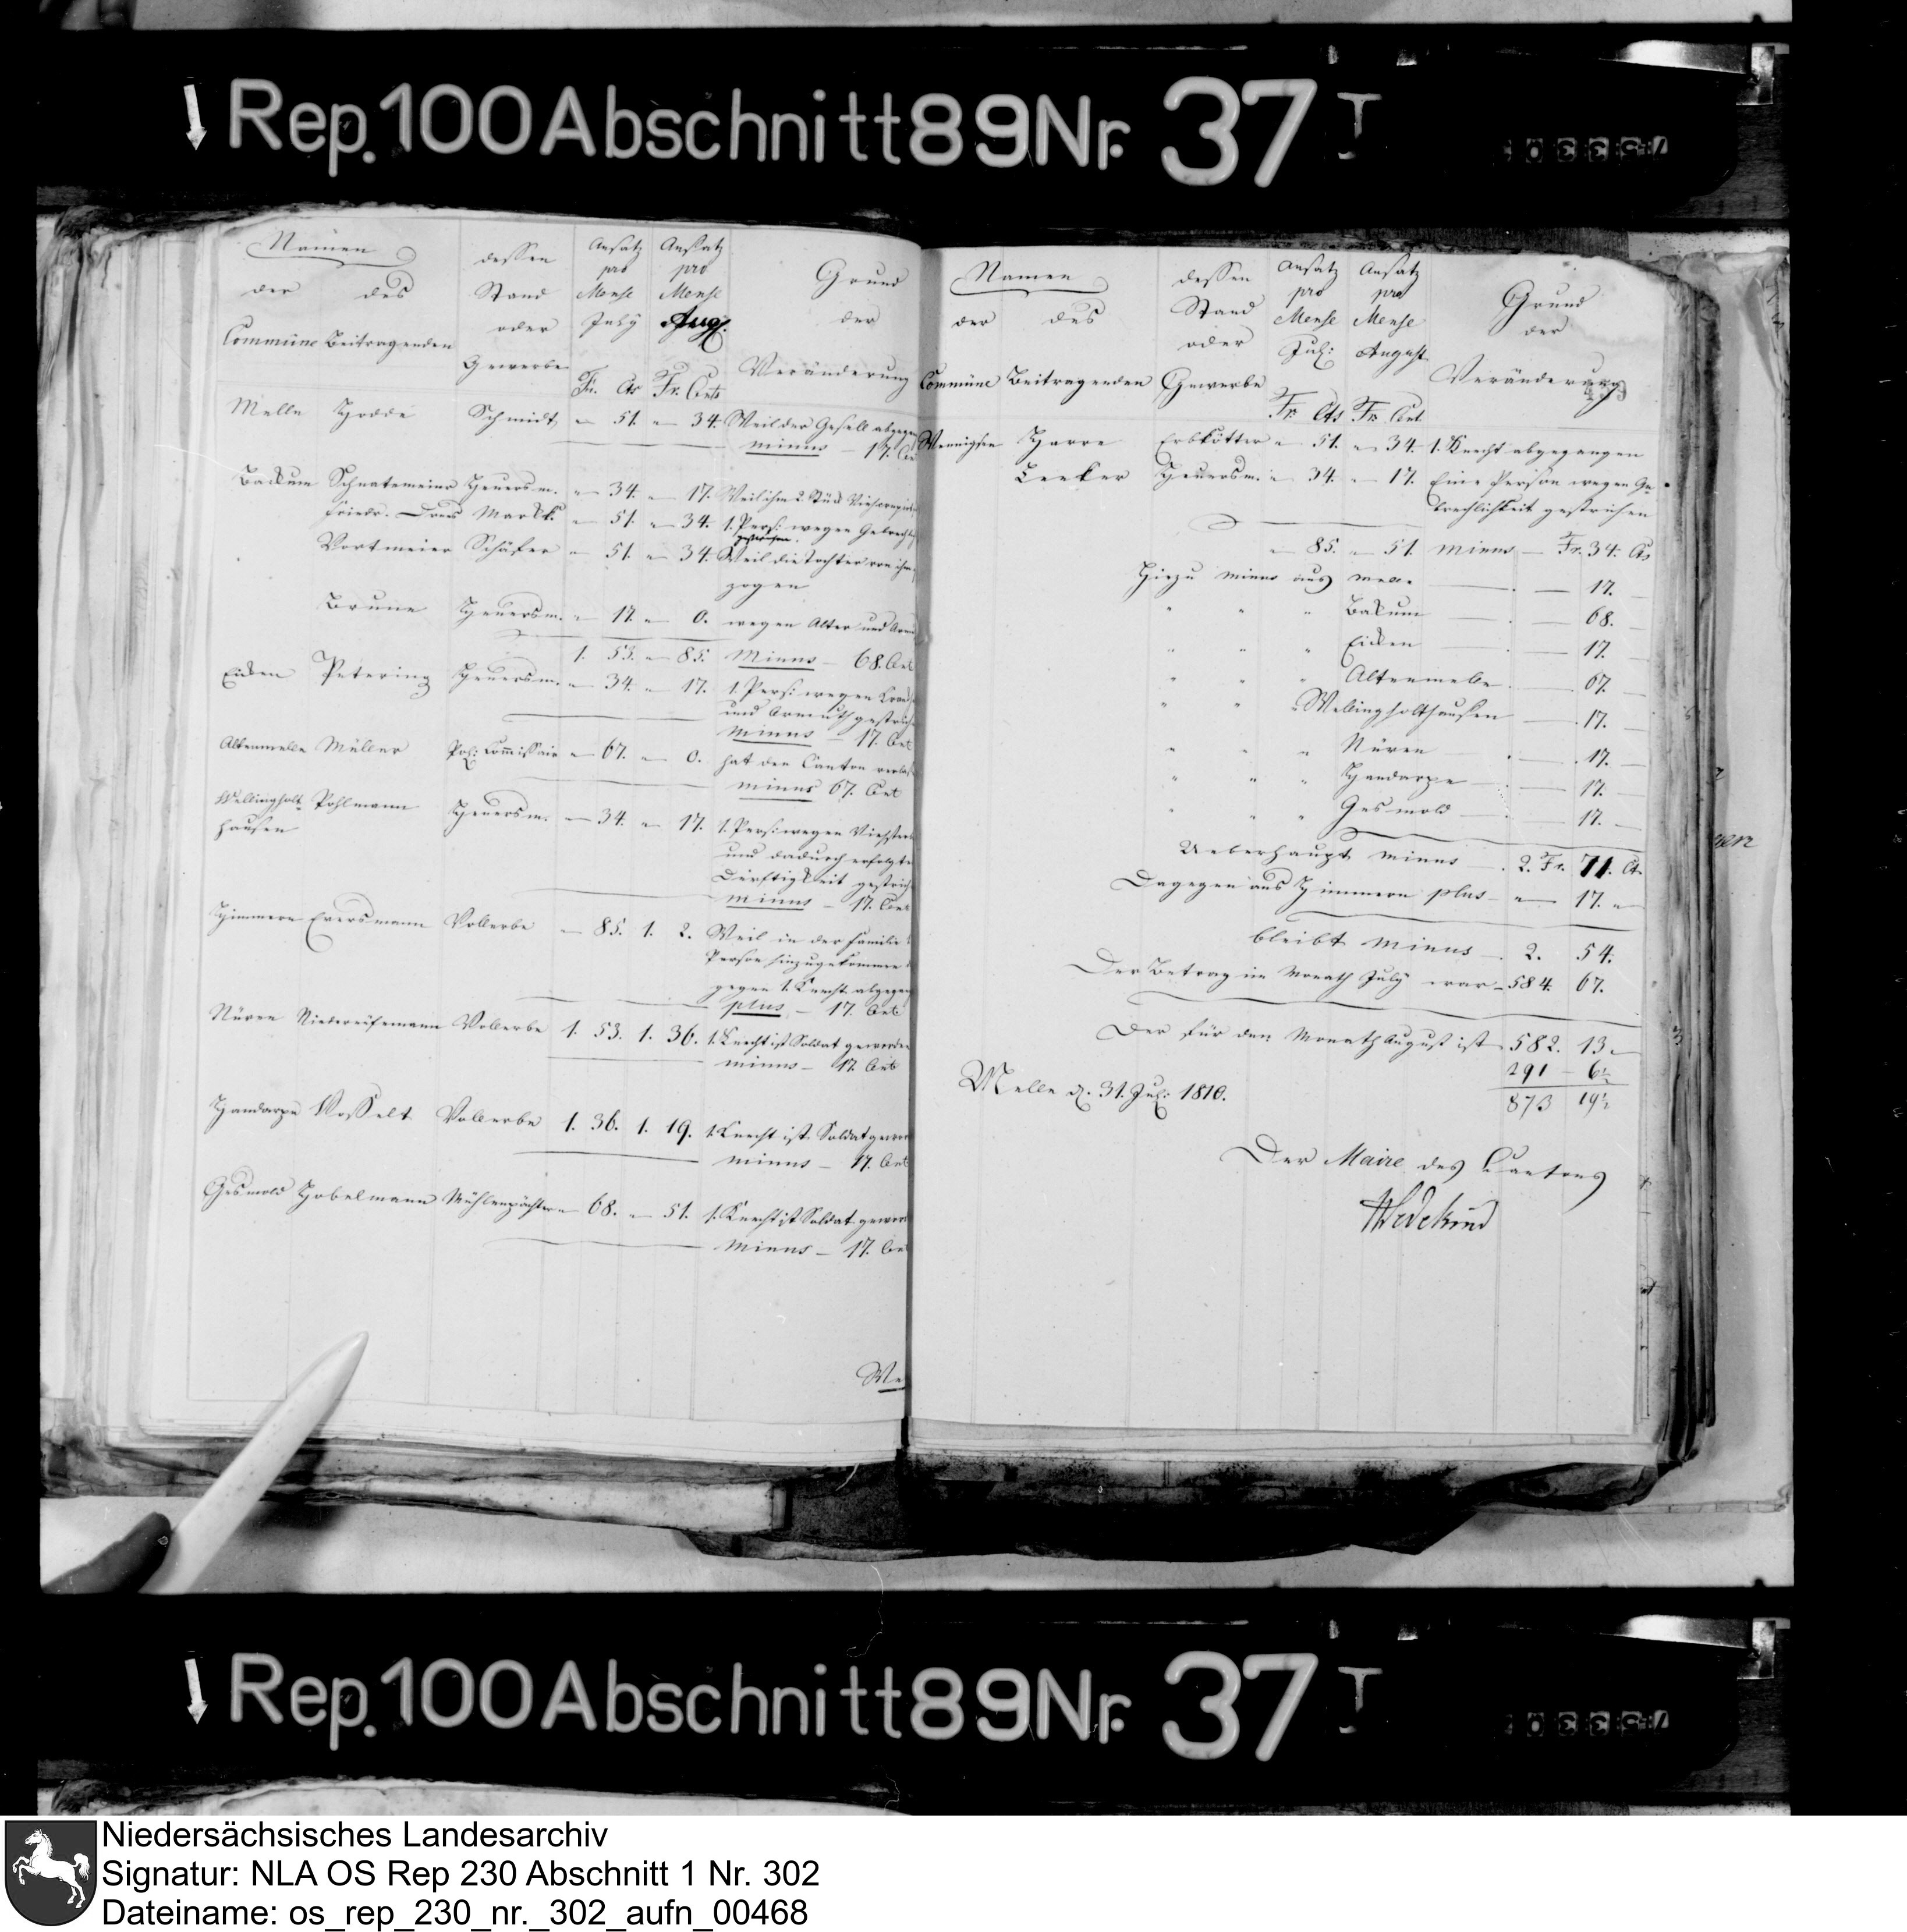 Rep. 100 Abschnitt 89 Nr. 37 I
Namen
der des
Commüne Beitragenden
dessen
Stand
oder
Gewerbe
Ansatz
pro
Mense
July
Fr. Cts
Ansatz
pro
Mense
Aug.
Fr. Cents
Grund
der
Veränderung
Melle Hodde Schmidt - 51. - 34. Weil der Gesell abgegan
minus - 17. Cen
Backum Schnatemeier Heuersm. - 34. - 17. Weil ihm 2 Stück Vieh
Friedr. Drees Markk. - 51. - 34. 1. Pers: wegen Gebrechl
gestrichen.
Vortmeier Schäfer - 51. - 34. Weil die Tochter von ihm
zogen
Brune Heuersm. - 17. - 0. wegen Alter und Arm
1. 53. - 85. Minus - 68. Cent
Eicken Petering Heuersm. - 34. - 17. 1. Pers: wegen
und Armuth gestrich
minus - 17. Cent
Altenmelle Müller Pol: Commissair - 67. - 0. hat den Canton verlas
minus 67. Cent
Wellingholt- Pohlmann Heuersm. - 34. - 17. 1. Pers: wegen Viehsterb
hausen
und dadurch erfolgte
Dürftigkeit gestrich
minus - 17. Cent
Himmern Eversmann Vollerbe - 85. 1. 2. Weil in der Familie
Person hinzugekommen
gegen 1. Knecht abgegan
plus - 17. Cent
Nüven Niederüfemann Vollerbe 1. 53. 1. 36. 1. Knecht ist Soldat geworden
minus - 17. Cent
Handarpe Vosselt Vollerbe 1. 36. 1. 19. 1. Knecht ist Soldat gewor
minus - 17. Cent
Gesmold Hobelmann Mühlenpächter - 68. - 51. 1. Knecht ist Soldat gewor
minus - 17. Cen
We
Namen
der des
Commüne Beitragenden
dessen
Stand
oder
Gewerbe
Ansatz
pro
Mense
Jul:
Fr. Cts
Ansatz
pro
Mense
August
Fr. Cent
Grund
der
Veränderung
Wennigsen Harre Erbkötter - 51. - 34. 1. Knecht abgegangen
Leeker Heuersm. - 34. - 17. Eine Person wegen Ge-
brechlichkeit gestrichen
- 85. - 51. minus - Fr. 34. Cts
Hiezu minus aus Melle - 17.
" " " Bakum - 68.
" " " Eicken - 17.
" " " Altenmelle - 67.
" " " Wellingholthausen - 17.
" " " Nüven - 17.
" " " Handarpe - 17.
" " " Gesmold - 17.
Ueberhaupt minus - 2. Fr. 71. Ct.
Dagegen aus Himmern plus - - 17. -
bleibt minus - 2. 54.
Der Betrag im Monath July war - 584. 67.
Der für den Monath August ist 582. 13.
291 - 6½
873 19½
Melle d. 31. Jul: 1810.
Der Maire des Cantons
Wedekind
Rep. 100 Abschnitt 89 Nr. 37 I
Niedersächsisches Landesarchiv
Signatur: NLA OS Rep 230 Abschnitt 1 Nr. 302
Dateiname: os_rep_230_nr._302_aufn_00468